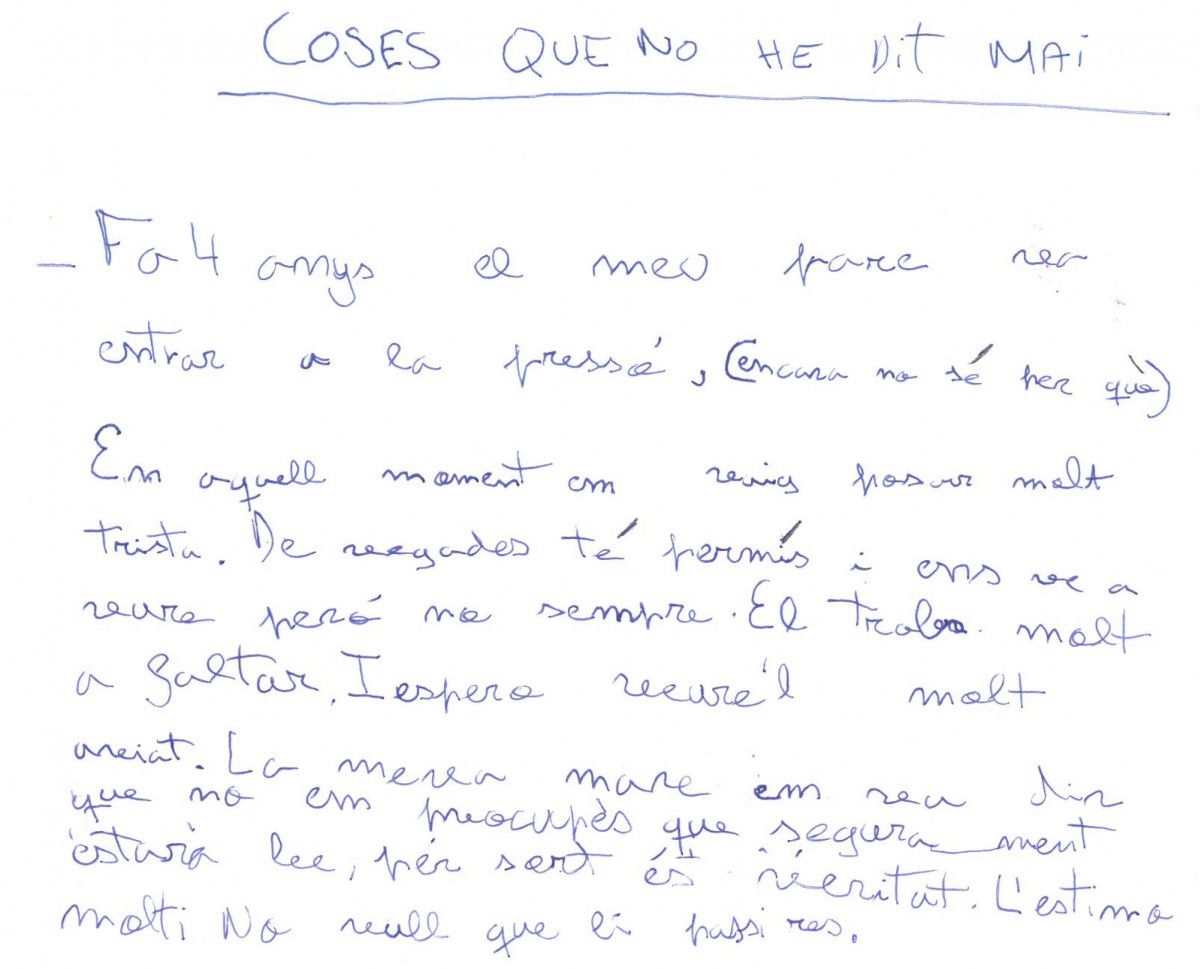 COSES QUE NO HE DIT MAI
- Fa 4 anys el meu pare va
entrar a la pressó, (encara no sé per què)
En aquell moment em vaig posar molt
trista. De vegades té permís i ens ve a
veure peró no sempre. El trobo molt
a faltar. I espero veure'l molt
aviat. La meva mare em va dir
que no em preocupès que segura_ment
estarà be, per sort és veritat. L'estimo
molt i No vull que li passi res.